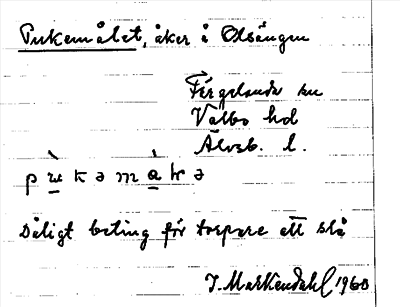 Pukemålet, åker å Olsängen
Färgelanda sn
Valbo hd
Älvsb. l.
Dåligt beting för torpare att slå
J. Markendahl 1960